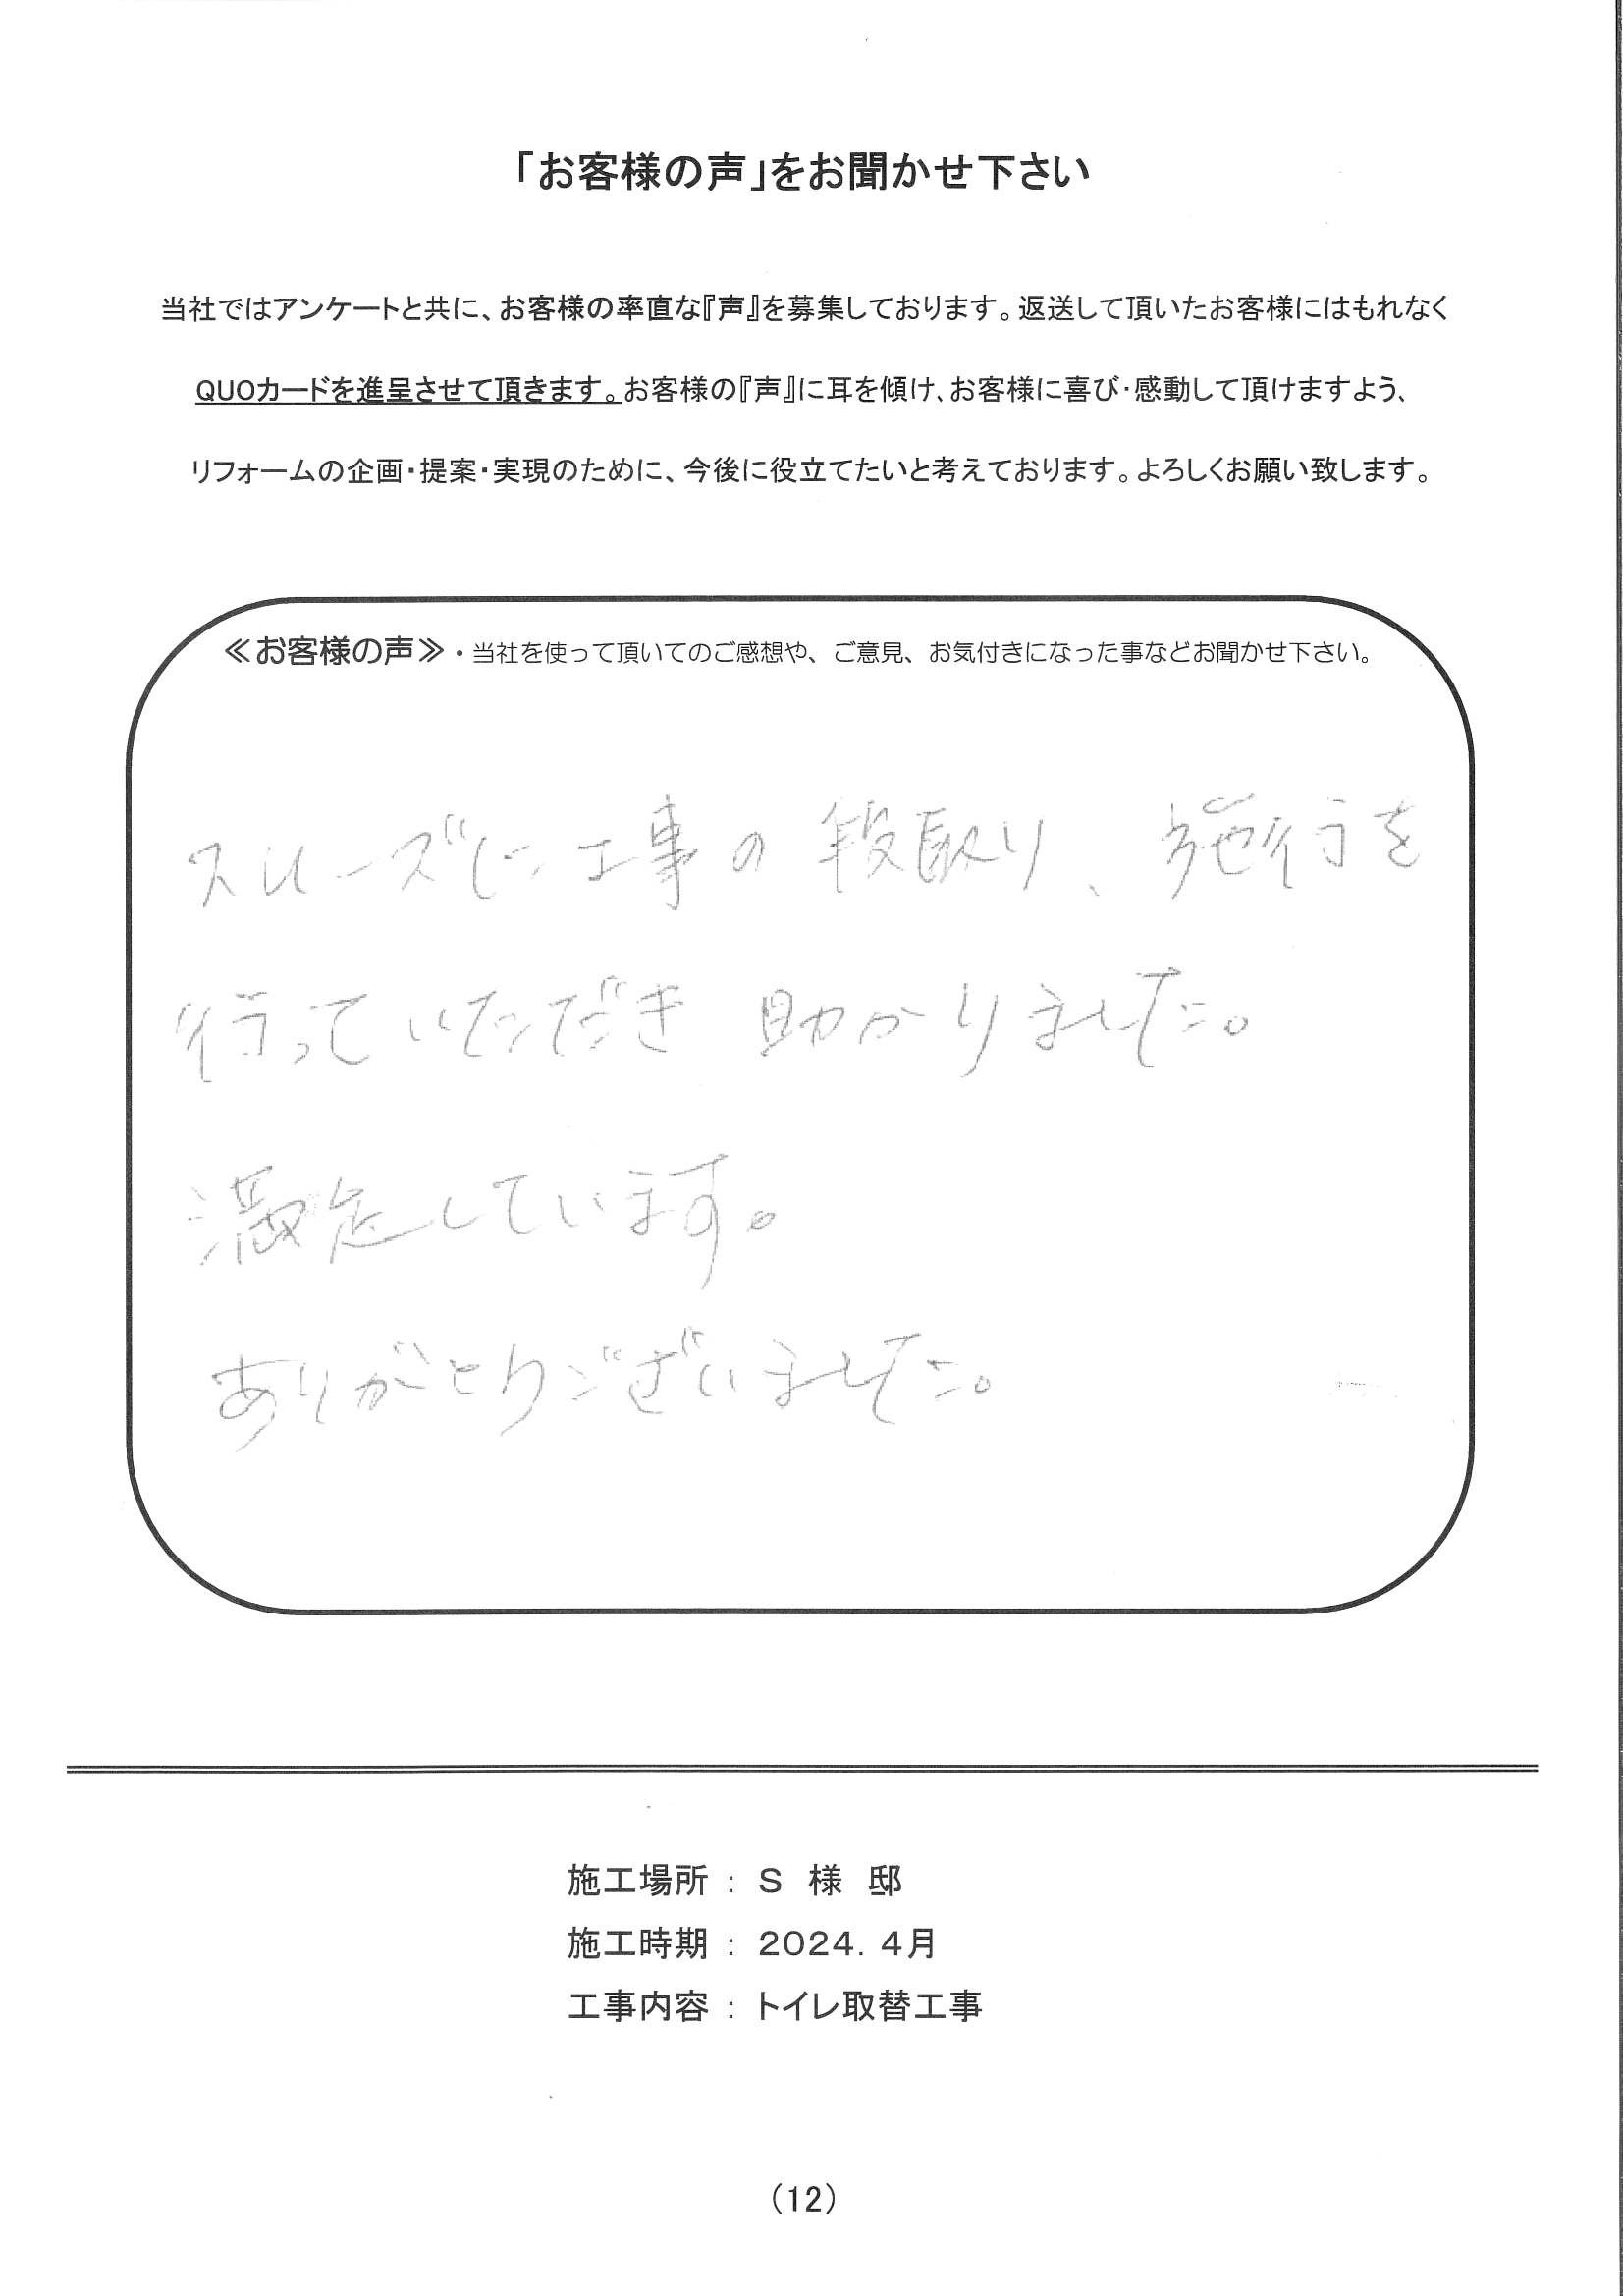 「お客様の声」をお聞かせ下さい
当社ではアンケートと共に、お客様の率直な『声』を募集しております。返送して頂いたお客様にはもれなく
QUOカードを進呈させて頂きます。お客様の『声』に耳を傾け、お客様に喜び・感動して頂けますよう、
リフォームの企画・提案・実現のために、今後に役立てたいと考えております。よろしくお願い致します。
≪お客様の声≫・当社を使って頂いてのご感想や、ご意見、お気付きになった事などお聞かせ下さい。
スムーズに工事の段取り、施行を
行っていただき助かりました。
満足しています。
ありがとうございました。
施工場所 : S 様 邸
施工時期 : 2024. 4月
工事内容 : トイレ取替工事
(12)